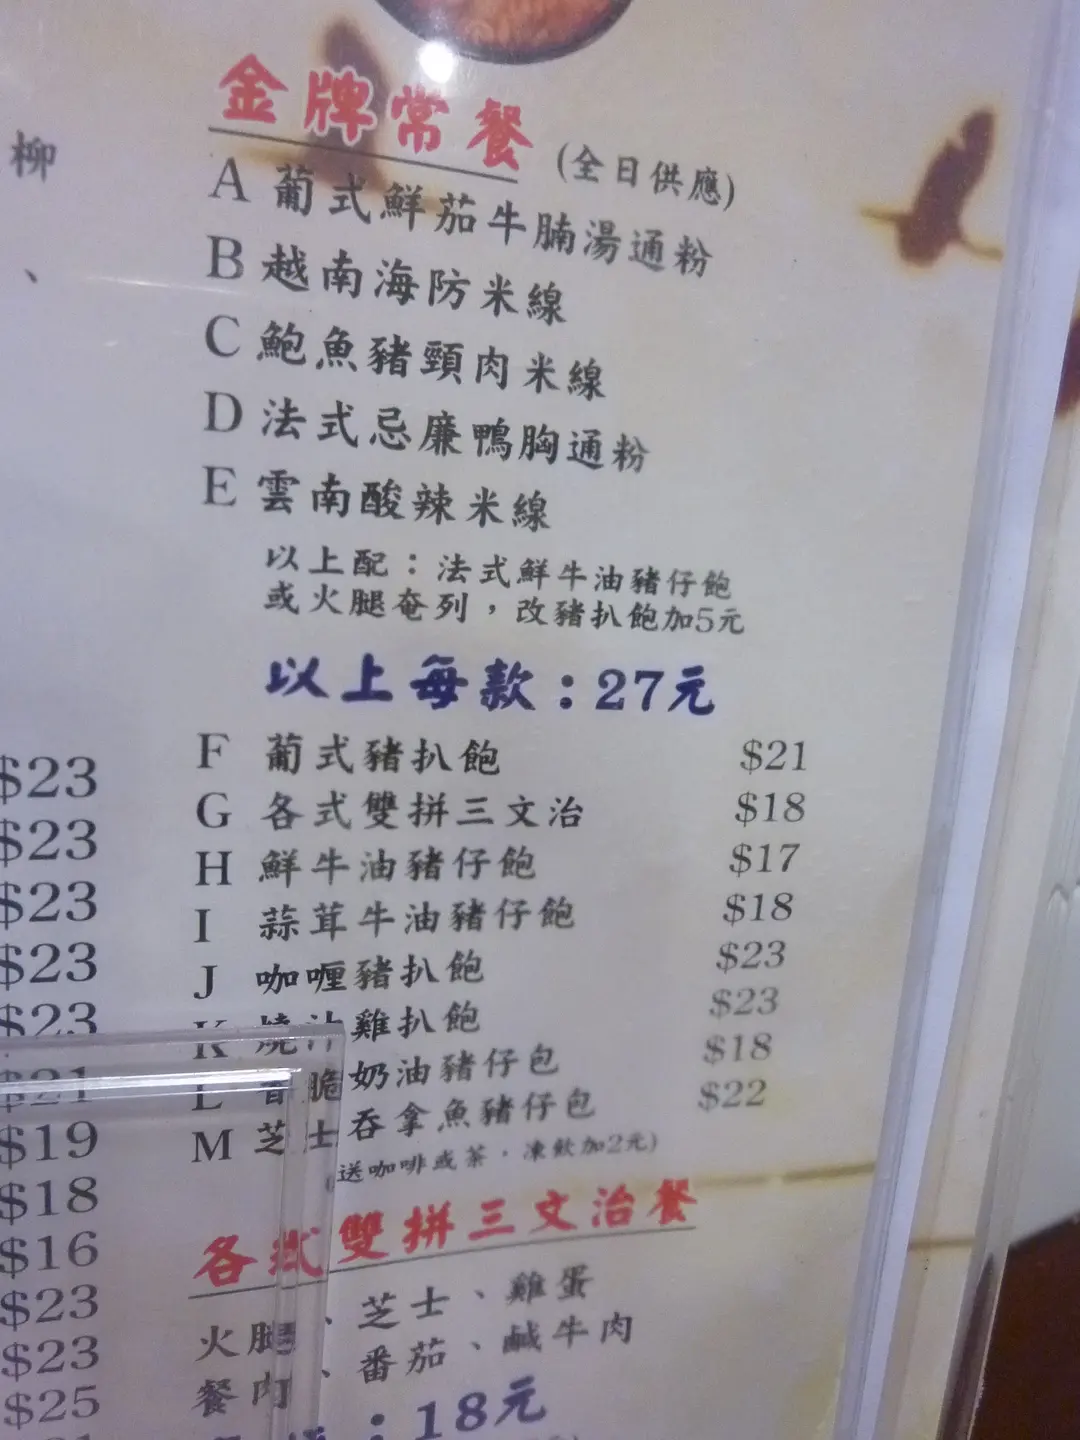 柳
、
金牌常餐 (全日供應)
A 葡式鮮茄牛腩湯通粉
B 越南海防米線
C 鮑魚豬頸肉米線
D 法式忌廉鴨胸通粉
E 雲南酸辣米線
以上配：法式鮮牛油豬仔飽
或火腿奄列，改豬扒飽加5元
以上每款：27元
F 葡式豬扒飽 $21
G 各式雙拼三文治 $18
H 鮮牛油豬仔飽 $17
I 蒜茸牛油豬仔飽 $18
J 咖喱豬扒飽 $23
K 燒汁雞扒飽 $23
L 香脆奶油豬仔包 $18
M 芝士吞拿魚豬仔包 $22
(送咖啡或茶，凍飲加2元)
各式雙拼三文治餐
火腿、芝士、雞蛋
餐肉、番茄、鹹牛肉
：18元
$23
$23
$23
$23
$23
$21
$19
$18
$16
$23
$23
$25